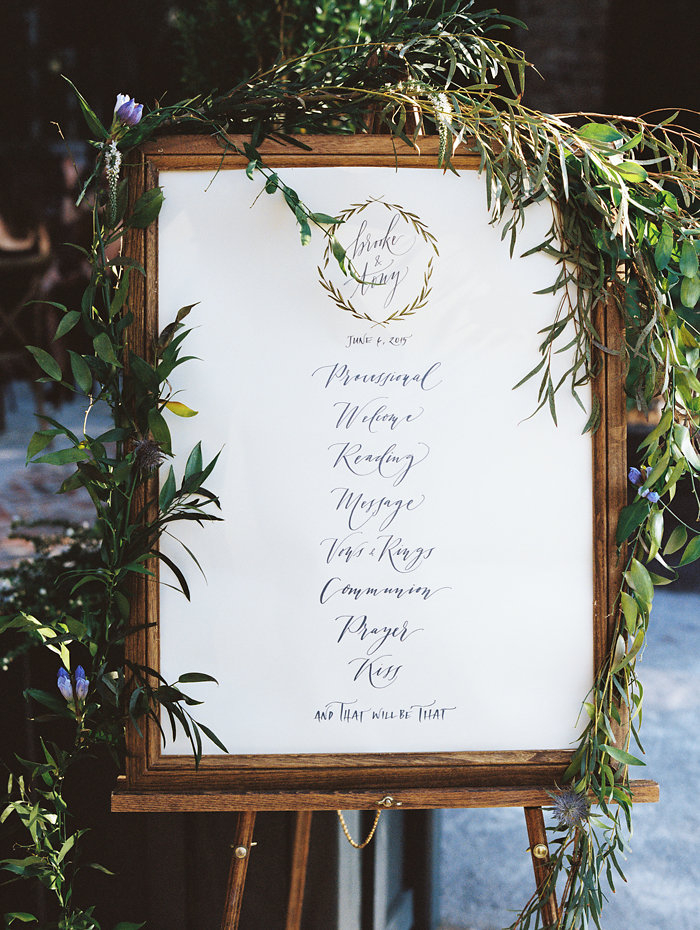 brooke
&
tony
JUNE 6, 2015
Processional
Welcome
Reading
Message
Vows & Rings
Communion
Prayer
Kiss
AND THAT WILL BE THAT